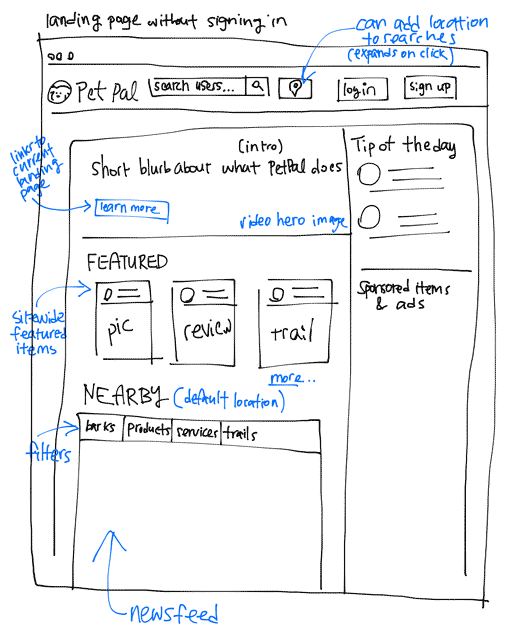 landing page without signing in
can add location
to searches
(expands on click)
Pet Pal
search users...
log in
sign up
links to
current
landing
page
(intro)
short blurb about what PetPal does
learn more
video hero image
Tip of the day
FEATURED
sitewide
featured
items
pic
review
trail
more...
Sponsored items
& ads
NEARBY (default location)
filters
barks
products
services
trails
newsfeed